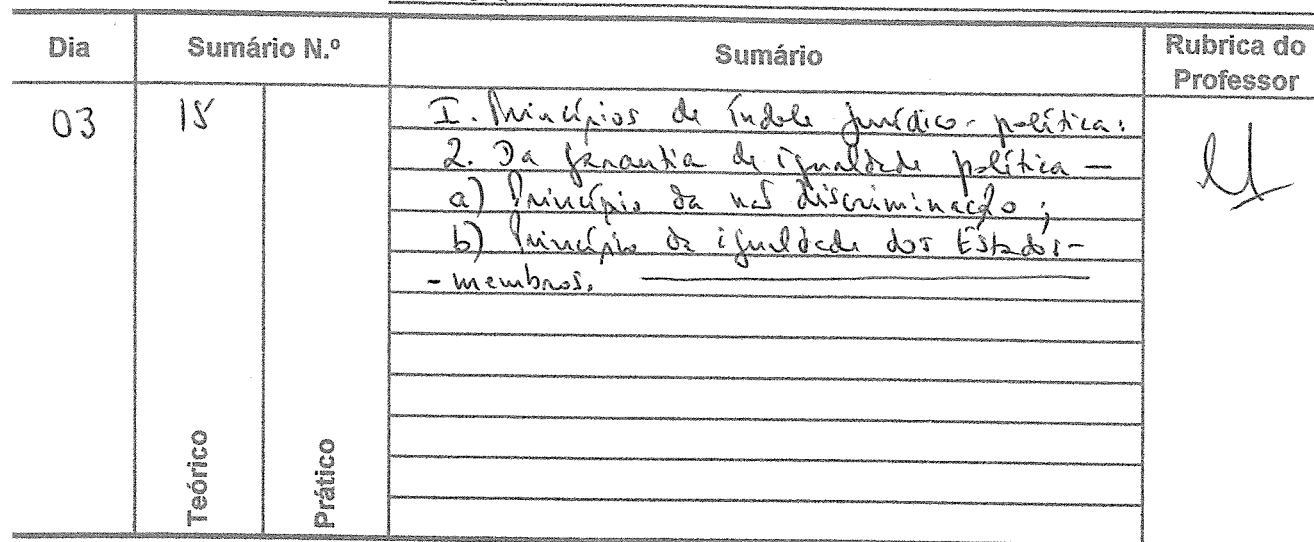 Dia
Sumário N.º
Sumário
Rubrica do
Professor
03
15
I. Princípios de índole jurídico-política:
2. Da garantia de igualdade política —
a) Princípio da não discriminação;
b) Princípio da igualdade dos Estados-
-membros.
Teórico
Prático